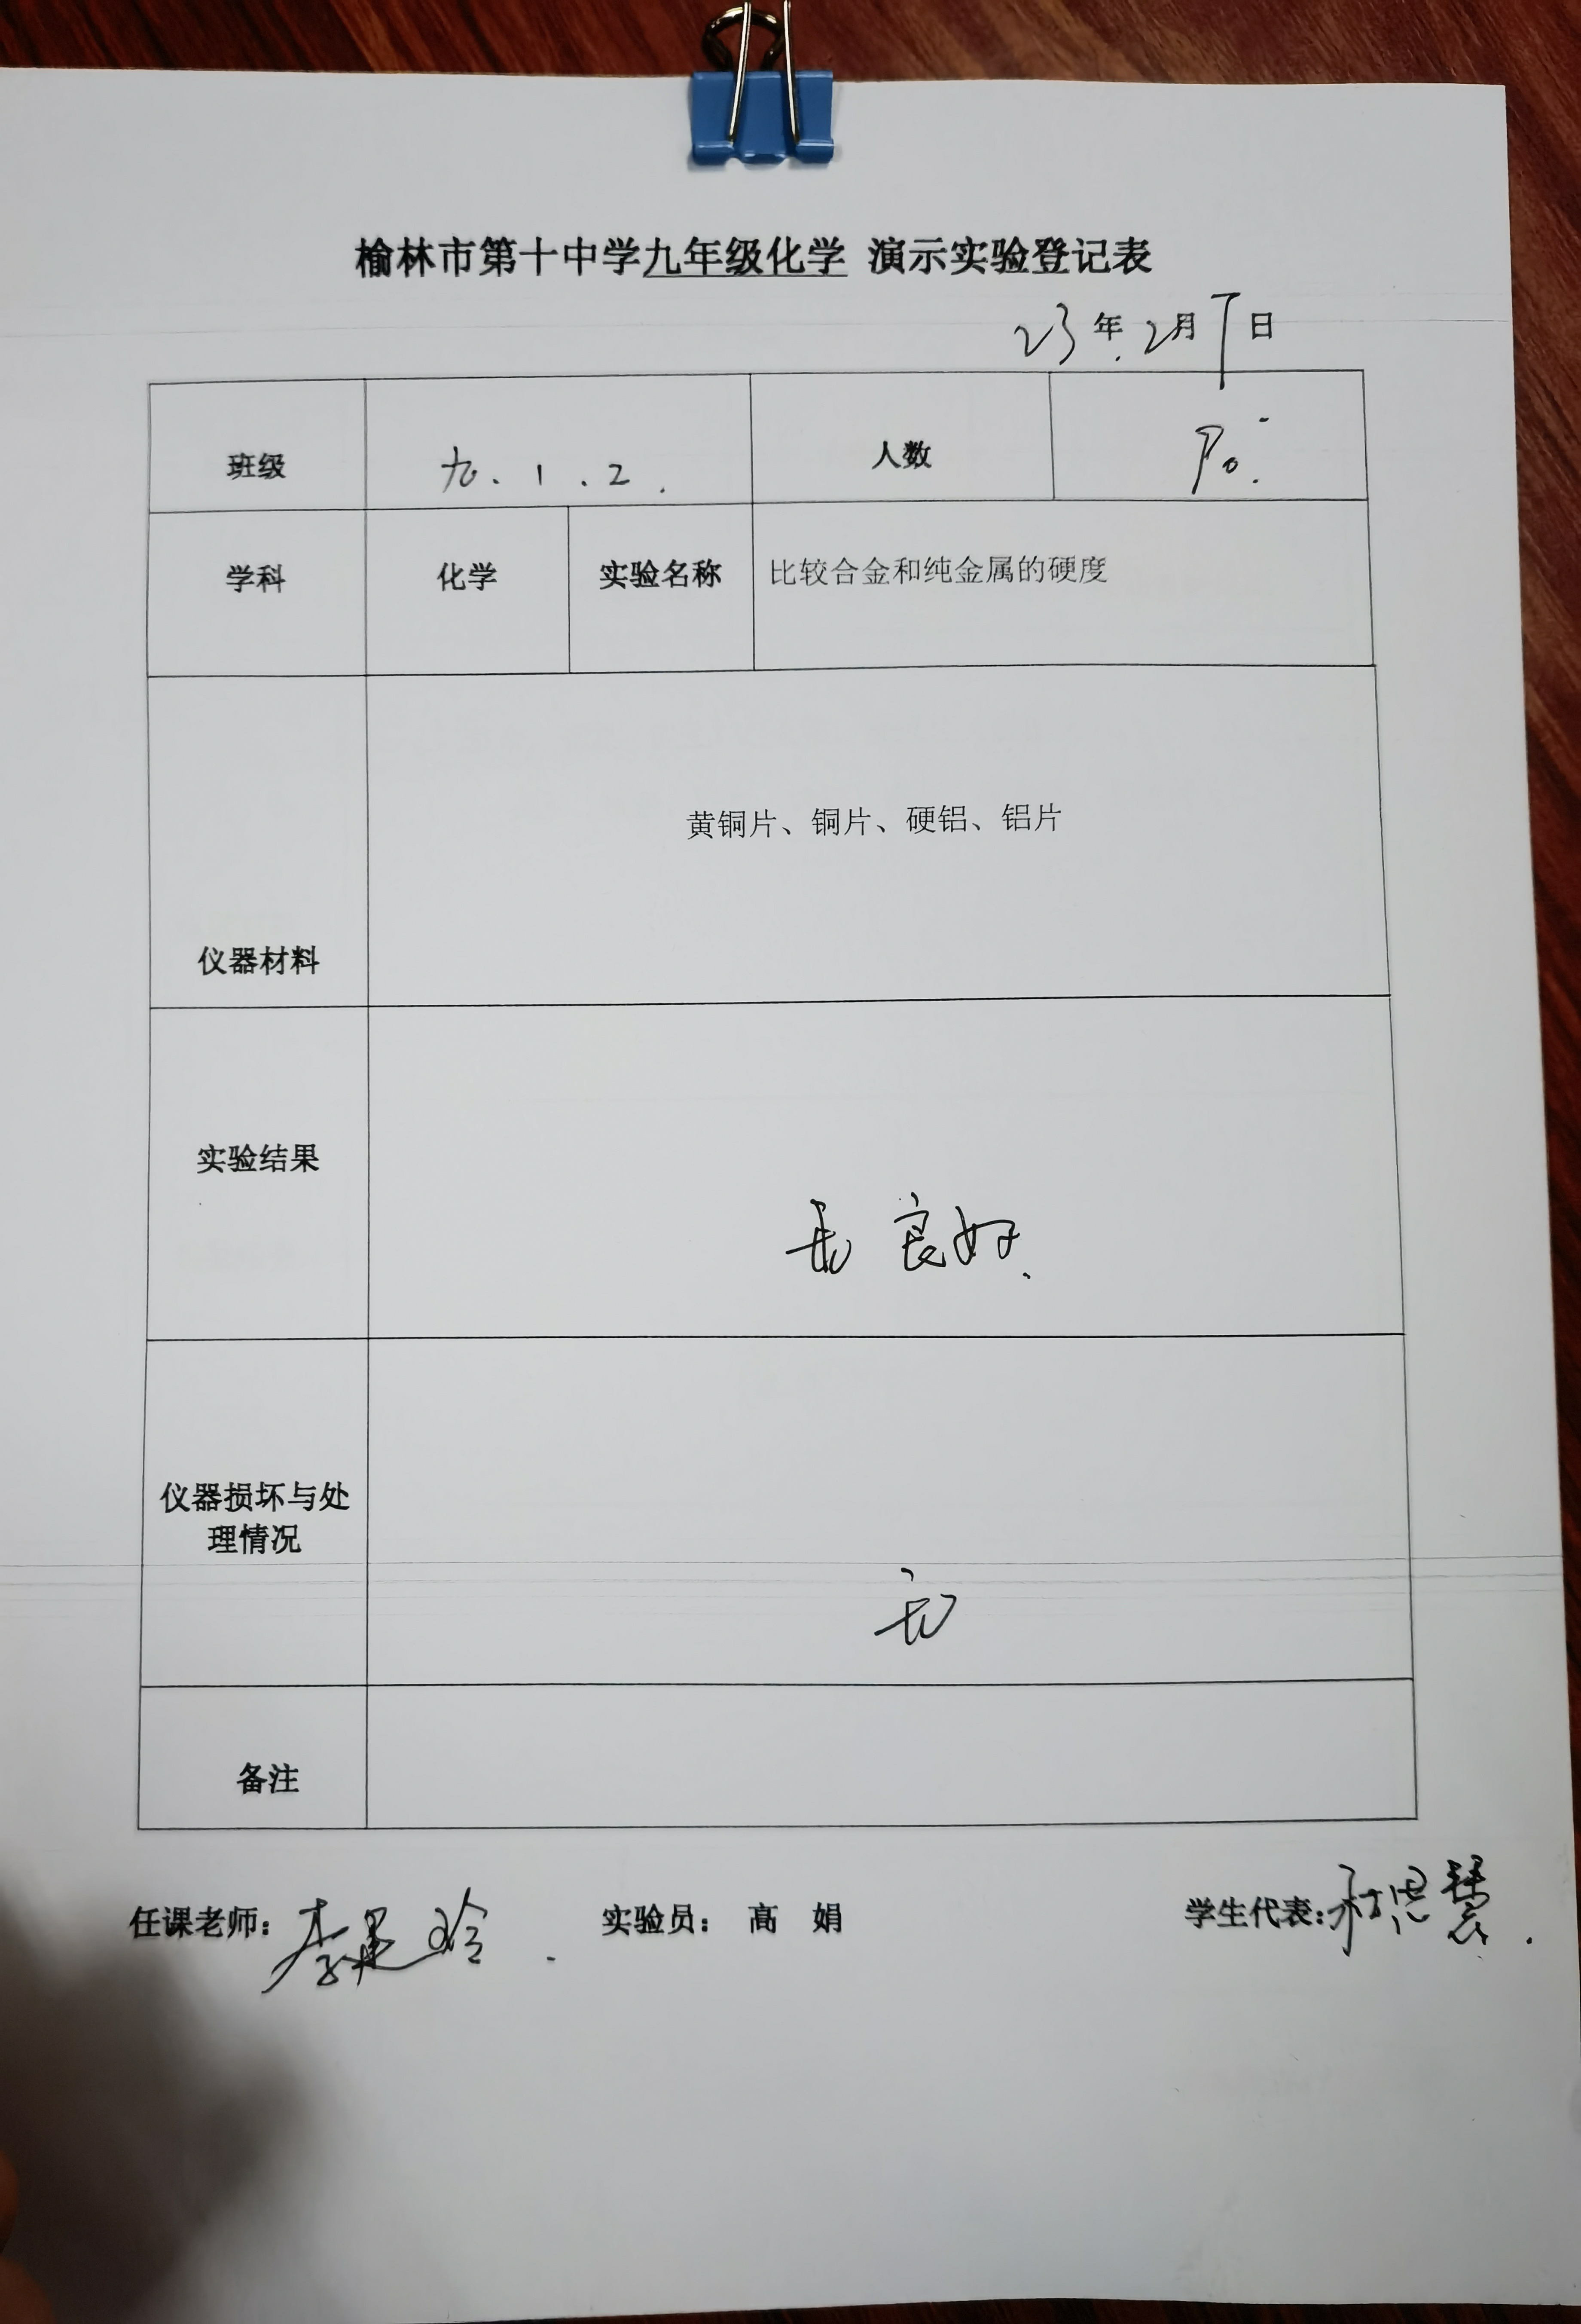 榆林市第十中学九年级化学 演示实验登记表
23年.2月7日
班级 九.1.2. 人数
学科 化学 实验名称 比较合金和纯金属的硬度
仪器材料 黄铜片、铜片、硬铝、铝片
实验结果 良好.
仪器损坏与处
理情况 无
备注
任课老师: 李 实验员: 高 娟 学生代表: